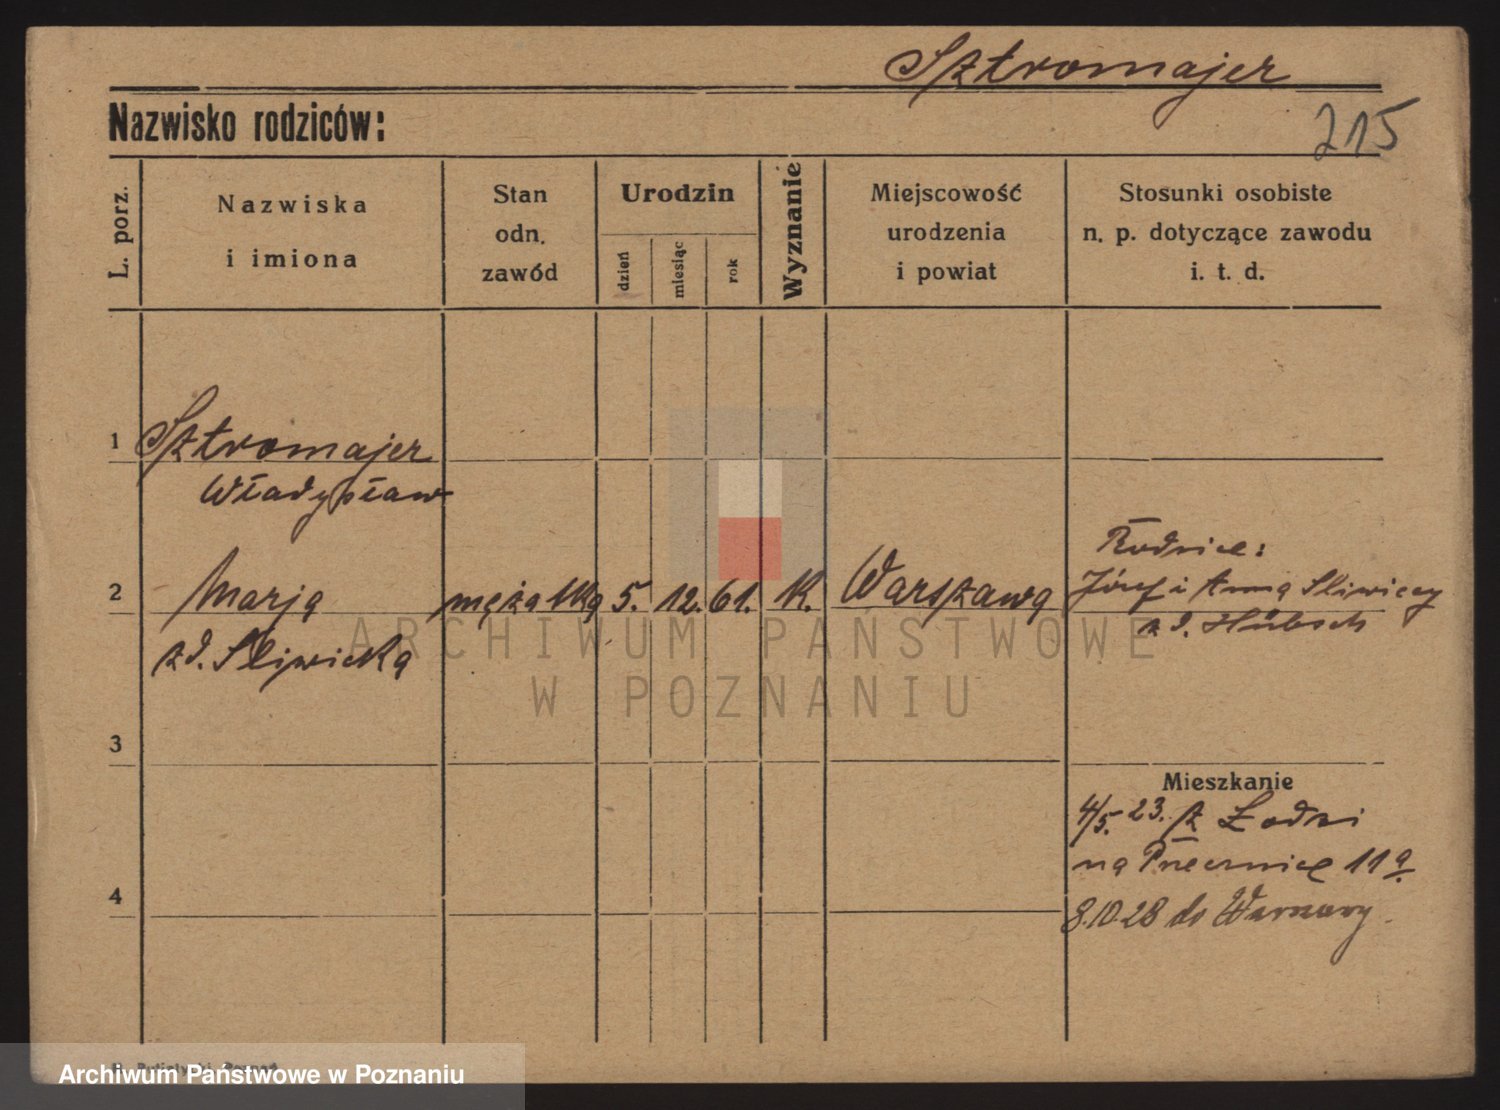 Sztromajer
215
Nazwisko rodziców:
L. porz.
Nazwiska
i imiona
Stan
odn.
zawód
Urodzin
dzień
miesiąc
rok
Wyznanie
Miejscowość
urodzenia
i powiat
Stosunki osobiste
n. p. dotyczące zawodu
i. t. d.
1 Sztromajer
Władysław
Rodzice:
2 Marja mężatka 5. 12. 61. k. Warszawa Józef i Anna Śliwiccy
z d. Śliwicka
z d. Hübsch
ARCHIWUM PAŃSTWOWE
W POZNANIU
3
Mieszkanie
4/5. 23. z Łodzi
na Przecznice 11a
4
8.10.28 do Warszawy
Archiwum Państwowe w Poznaniu